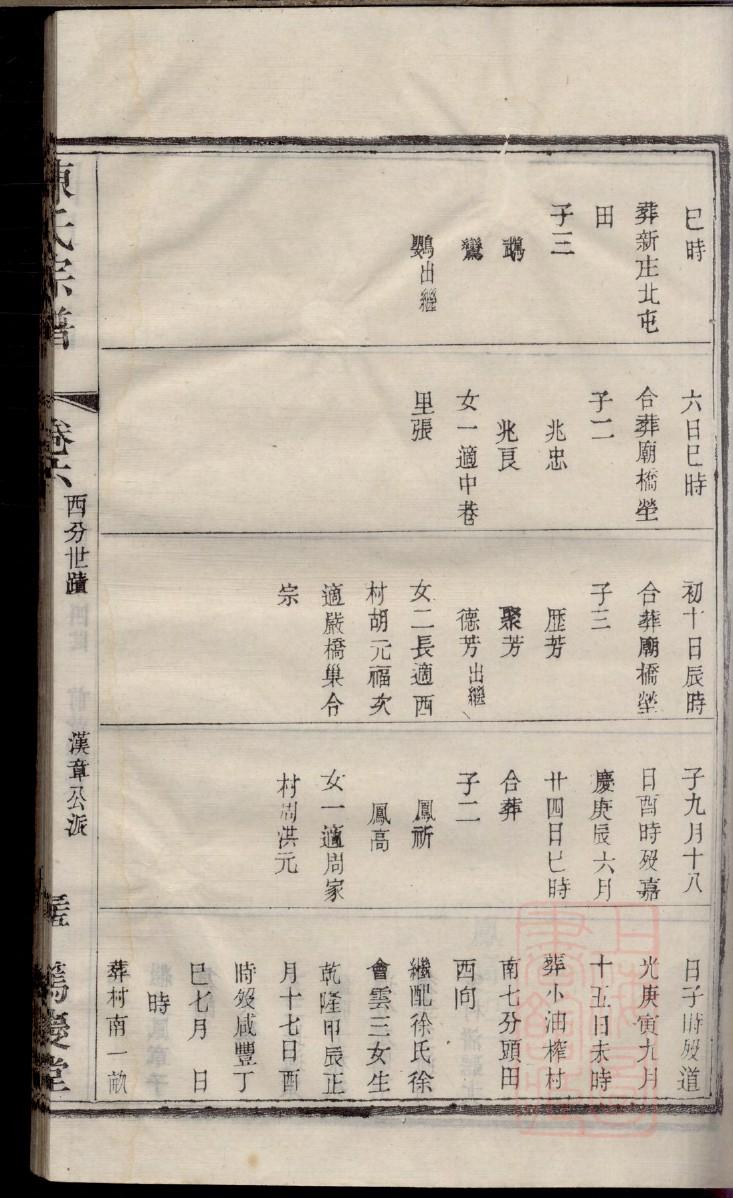 巳時
葬新庄北屯
田
子三
鵡
鸞
鸚出繼
六日巳時
合葬廟橋塋
子二
兆忠
兆良
女一適中巷
里張
初十日辰時
合葬廟橋塋
子三
歷芳
聚芳
德芳出繼
女二長適西
村胡元福次
適嚴橋巢合
宗
子九月十八
日酉時歿嘉
慶庚辰六月
廿四日巳時
合葬
子二
鳳祈
鳳高
女一適周家
村周洪元
日子時歿道
光庚寅九月
十五日未時
葬小油榨村
南七分頭田
西向
繼配徐氏徐
會雲三女生
乾隆甲辰正
月十七日酉
時歿咸豐丁
巳七月 日
時
葬村南一畝
陳氏宗譜
卷六
西分世蹟
漢章公派
篤慶堂